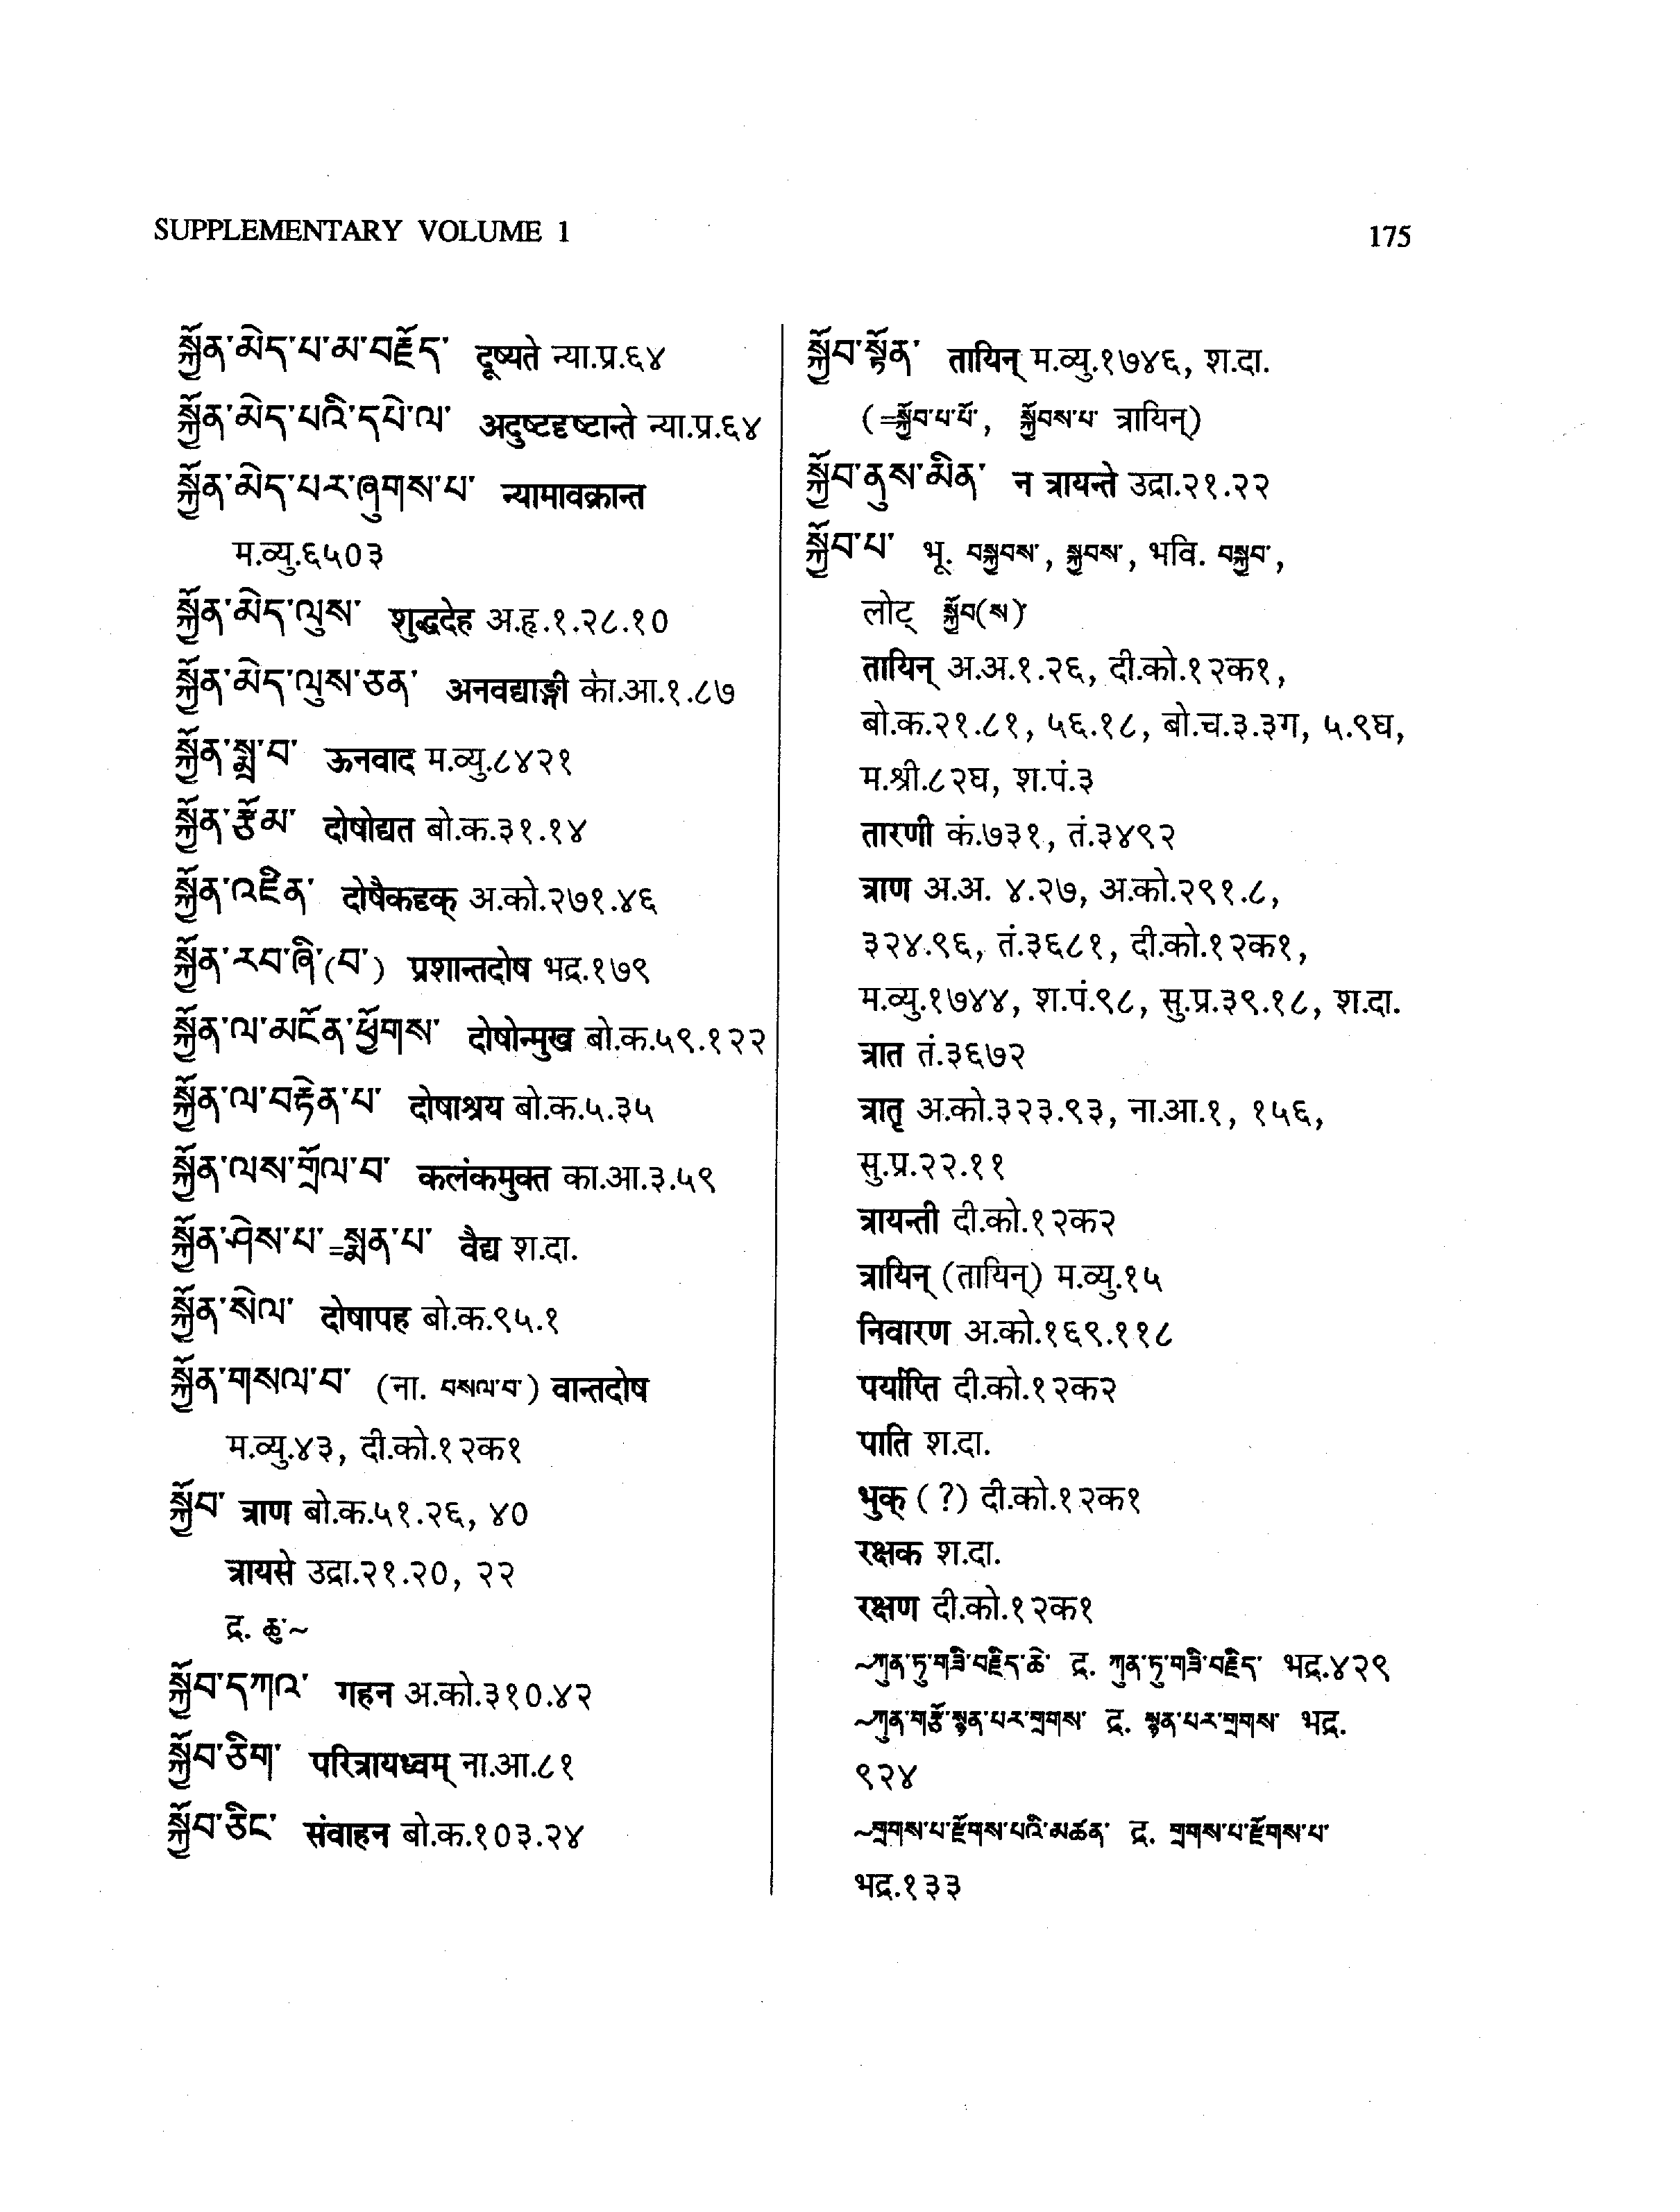 SUPPLEMENTARY VOLUME 1
175
སྐྱོན་མེད་པ་མ་བརྗོད་ दूष्यते न्या.प्र.६४
སྐྱོན་མེད་པའི་དཔེ་ལ་ अदुष्टदृष्टान्ते न्या.प्र.६४
སྐྱོན་མེད་པར་ཞུགས་པ་ न्यामावक्रान्त
म.व्यु.६५०३
སྐྱོན་མེད་ལུས་ शुद्धदेह अ.हृ.१.२८.१०
སྐྱོན་མེད་ལུས་ཅན་ अनवद्याङ्गी का.आ.१.८७
སྐྱོན་སྨྲ་བ་ ऊनवाद म.व्यु.८४२१
སྐྱོན་རྩོམ་ दोषोद्यत बो.क.३१.१४
སྐྱོན་འཛིན་ दोषैकदृक् अ.को.२७१.४६
སྐྱོན་རབ་ཞི་(བ་) प्रशान्तदोष भद्र.१७९
སྐྱོན་ལ་མངོན་ཕྱོགས་ दोषोन्मुख बो.क.५९.१२२
སྐྱོན་ལ་བརྟེན་པ་ दोषाश्रय बो.क.५.३५
སྐྱོན་ལས་གྲོལ་བ་ कलंकमुक्त का.आ.३.५९
སྐྱོན་ཤེས་པ་=སྨན་པ་ वैद्य श.दा.
སྐྱོན་སེལ་ दोषापह बो.क.९५.१
སྐྱོན་གསལ་བ་ (ना. བསལ་བ་) वान्तदोष
म.व्यु.४३, दी.को.१२क१
སྐྱོབ་ त्राण बो.क.५१.२६, ४०
त्रायसे उद्रा.२१.२०, २२
द्र. ཆུ་~
སྐྱོབ་དཀའ་ गहन अ.को.३१०.४२
སྐྱོབ་ཅིག་ परित्रायध्वम् ना.आ.८१
སྐྱོབ་ཅིང་ संवाहन बो.क.१०३.२४
སྐྱོབ་སྟོན་ तायिन् म.व्यु.१७४६, श.दा.
(=སྐྱོབ་པ་པོ་, སྐྱོབས་པ་ त्रायिन्)
སྐྱོབ་ནུས་མིན་ न त्रायन्ते उद्रा.२१.२२
སྐྱོབ་པ་ भू. བསྐྱབས་, སྐྱབས་, भवि. བསྐྱབ་,
लोट् སྐྱོབ(ས)་
तायिन् अ.अ.१.२६, दी.को.१२क१,
बो.क.२१.८१, ५६.१८, बो.च.३.३ग, ५.९घ,
म.श्री.८२घ, श.पं.३
तारणी कं.७३१, तं.३४९२
त्राण अ.अ. ४.२७, अ.को.२९१.८,
३२४.९६, तं.३६८१, दी.को.१२क१,
म.व्यु.१७४४, श.पं.९८, सु.प्र.३९.१८, श.दा.
त्रात तं.३६७२
त्रातृ अ.को.३२३.९३, ना.आ.१, १५६,
सु.प्र.२२.११
त्रायन्ती दी.को.१२क२
त्रायिन् (तायिन्) म.व्यु.१५
निवारण अ.को.१६९.११८
पर्याप्ति दी.को.१२क२
पाति श.दा.
भुक् (?) दी.को.१२क१
रक्षक श.दा.
रक्षण दी.को.१२क१
~ཀུན་ཏུ་གཟི་བརྗིད་ཆེ་ द्र. ཀུན་ཏུ་གཟི་བརྗིད་ भद्र.४२९
~ཀུན་གཙོ་སྙན་པར་གྲགས་ द्र. སྙན་པར་གྲགས་ भद्र.
९२४
~གྲགས་པ་རྫོགས་པའི་མཚན་ द्र. གྲགས་པ་རྫོགས་པ་
भद्र.१३३